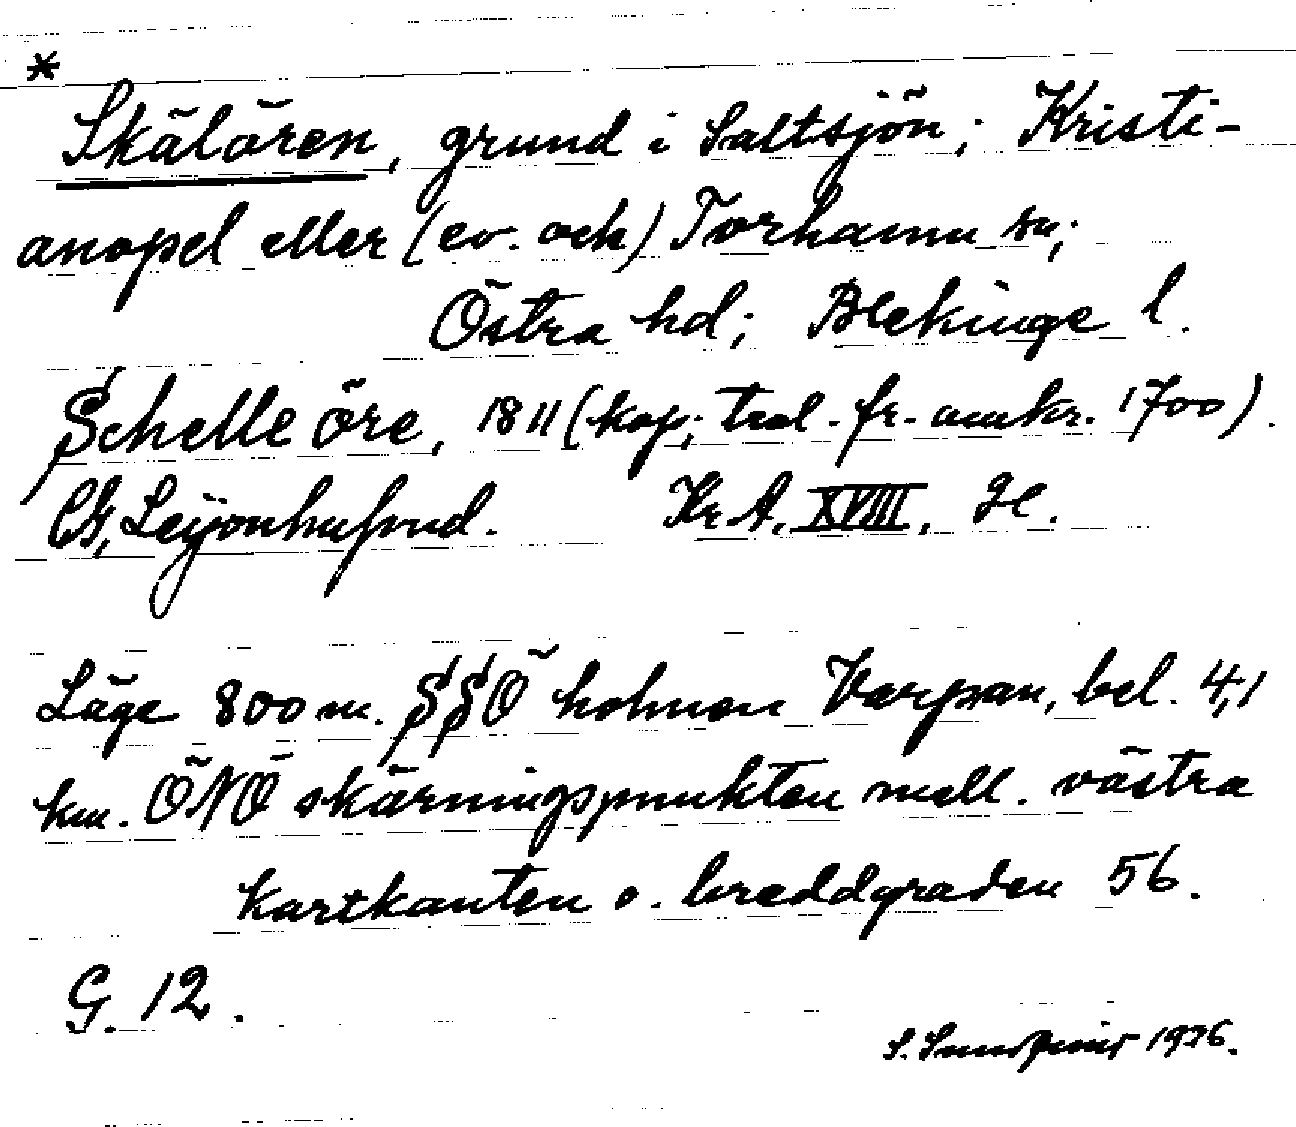 *
Skälören, grund i Saltsjön; Kristi-
anopel eller (ev. och) Torhamn sn;
Östra hd; Blekinge l.
Schelle öre, 1811 (kop; trol. fr. omkr. 1700).
CG, Leijonhufvud. Kr A, XVIII, 
Läge 800 m. SSÖ holmen Varpan, bel. 4,1
km. ÖNÖ skärningspunkten mell. västra
kartkanten o. breddgraden 56.
G. 12.
S. 1926.